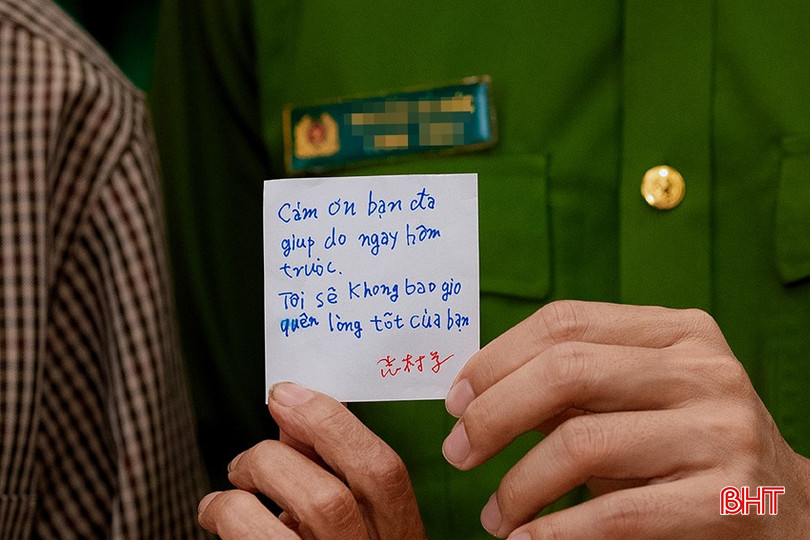 Cám ơn bạn đa
giup do ngay hôm
trước.
Tôi sẽ không bao gio
quên lòng tốt của bạn
BHT